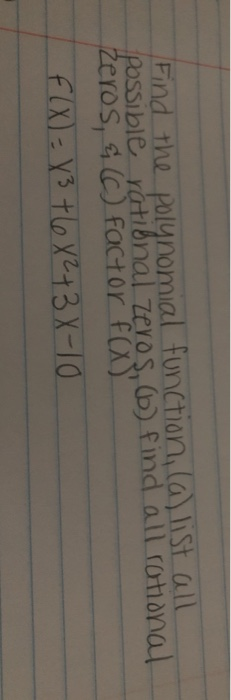 Find the polynomial function, (a) list all
possible rational zeros, (b) find all rational
zeros, & (c) factor f(x)
f(x) = x³ + 6x² + 3x - 10